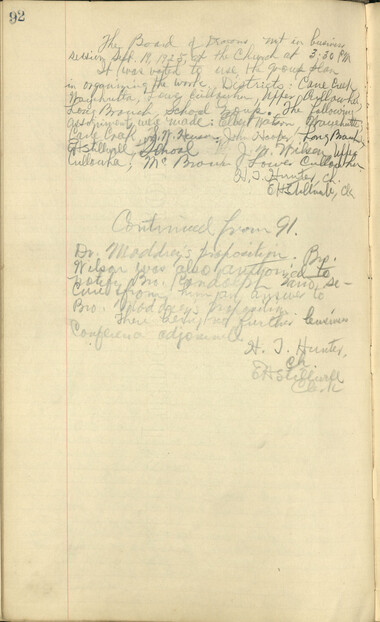 92
The Board of Deacons met in business
session Sept. 19, 1925, at the Church at 3:30 P.M.
It was voted to use the group plan
in organizing the work. Districts: Cane Creek
Wayehutta, Lower Cullowhee, Upper Cullowhee
Long Branch, School Group. The following
assignments were made: Elbert Watson Wayehutta
Cane Creek, J. W. Henson, John Hooper, Long Branch,
E H Stillwell, School J. W. Wilson, Upper
Cullowhee; Mc Brown, Lower Cullowhee
H. T. Hunter, Ch.
E H Stillwell, Clk
Continued from 91.
Dr. Maddrey's proposition. Bro.
Wilson was also authorized to
notify Bro. Randolph and se-
cure from him an answer to
Bro. Maddrey's proposition.
There being no further business
Conference adjourned.
H. T. Hunter,
Ch.
E H Stillwell
Clerk